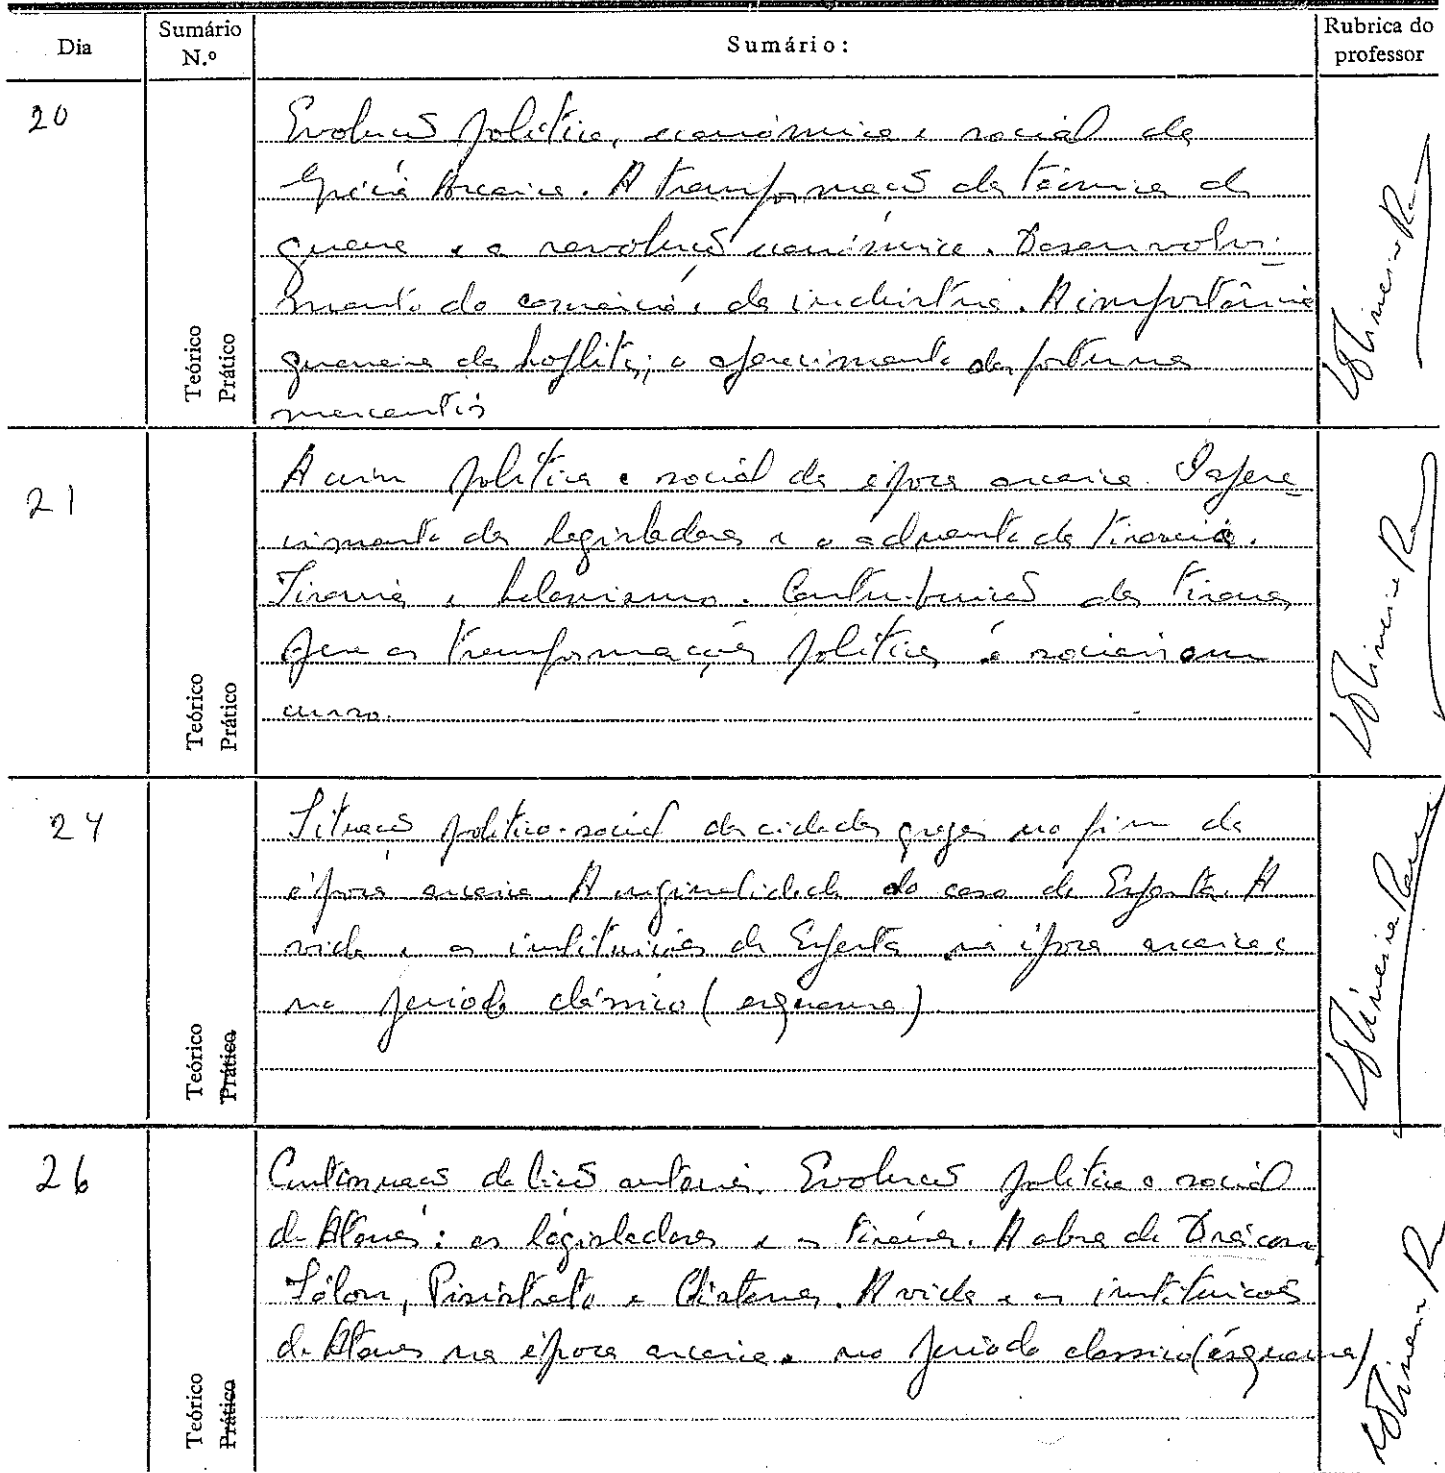 Dia
Sumário N.º
Sumário:
Rubrica do professor
20
Evolução política, económica e social da
Grécia Arcaica. A transformação da técnica da
guerra e a revolução económica. Desenvolvi-
mento do comércio e da indústria. A importância
guerreira dos hoplitas; o aparecimento das fortunas
mercantis
Teórico
Prático
21
A crise política e social da época arcaica. O apare-
cimento dos legisladores e o advento da tirania.
Tirania e helenismo. Contribuição dos tiranos
para as transformações políticas e sociais em
curso.
Teórico
Prático
24
Situação político-social das cidades gregas no fim da
época arcaica. A originalidade do caso de Esparta. A
vida e as instituições de Esparta na época arcaica e
no período clássico (esquema)
Teórico
Prático
26
Continuação da lição anterior. Evolução política e social
de Atenas: os legisladores e os tiranos. A obra de Drácon
Sólon, Pisístrato e Clístenes. A vida e as instituições
de Atenas na época arcaica e no período clássico (esquema)
Teórico
Prático